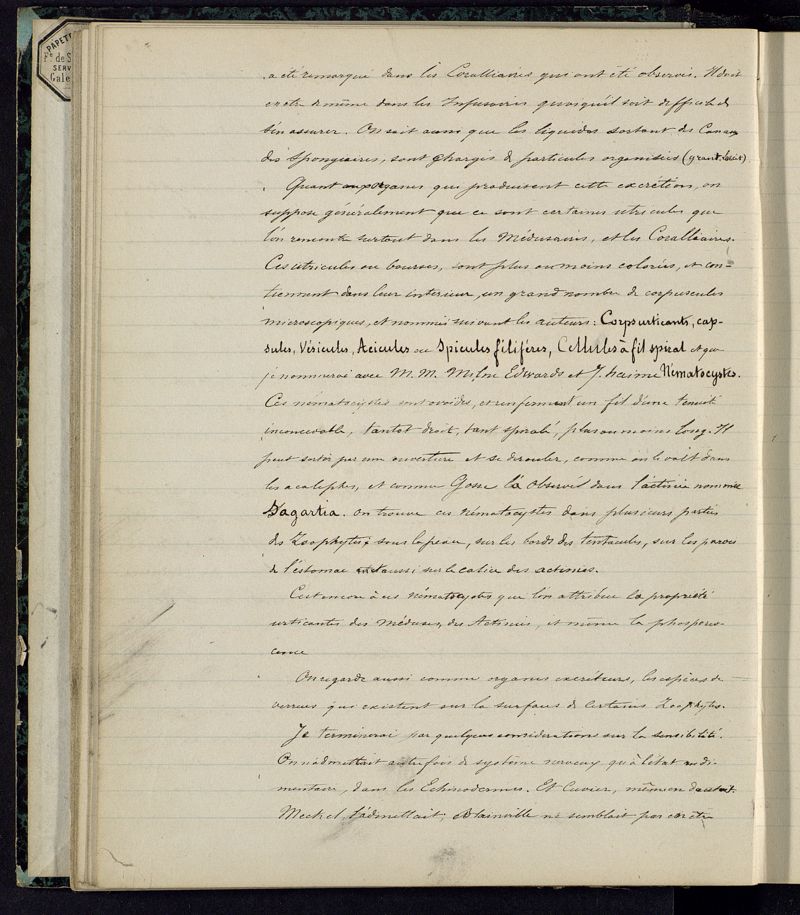 PAPET
Fe. de S
SERV
Gale
a été remarqué dans les Coralliaires qui ont été observés. Il doit
en être de même dans les Infusoires quoiqu'il soit difficile de
s'en assurer. On sait aussi que les liquides sortant des Canaux
des Spongiaires, sont chargés de particules organisées (grant,
Quant aux organes qui produisent cette excrétion, on
suppose généralement que ce sont certaines utricules que
l'on rencontre surtout dans les Médusaires, et les Coralliaires.
Ces utricules ou bourses, sont plus ou moins colorées, et con-
tiennent dans leur intérieur, un grand nombre de corpuscules
microscopiques, et nommés suivant les auteurs: Corps urticants, cap-
sules, Vésicules, Acicules ou Spicules filifères, Cellules à fil spiral et que
je nommerai avec M. M. Milne Edwards et J. haime Nématocystes.
Ces nématocystes sont ovoïdes, et renferment un fil d'une tenuité
inconcevable, tantot droit, tant spiralé, plus ou moins long. Il
peut sortir par une ouverture et se dérouler, comme on le voit dans
les acalephes, et comme Gosse l'a observé dans l'actinie nommée
Sagartia. on trouve ces nématocystes dans plusieurs parties
des Zoophytes; sous la peau, sur les bords des tentacules, sur les parois
de l'éstomac et aussi sur le calice des actinies.
C'est encore à ces nématocystes que l'on attribue la propriété
urticantes des Méduses, des Actinies, et même la phospores-
cence
On regarde aussi comme organes excréteurs, les espèces de
verrues qui existent sur la surface de certains Zoophytes.
Je terminerai par quelques considérations sur la sensibilité.
On n'admettait autrefois de système nerveux qu'à l'état rudi-
mentaire, dans les Echinodermes. Et Cuvier, même en doutait.
Meckel, l'admettait, Blainville ne semblait pas en être